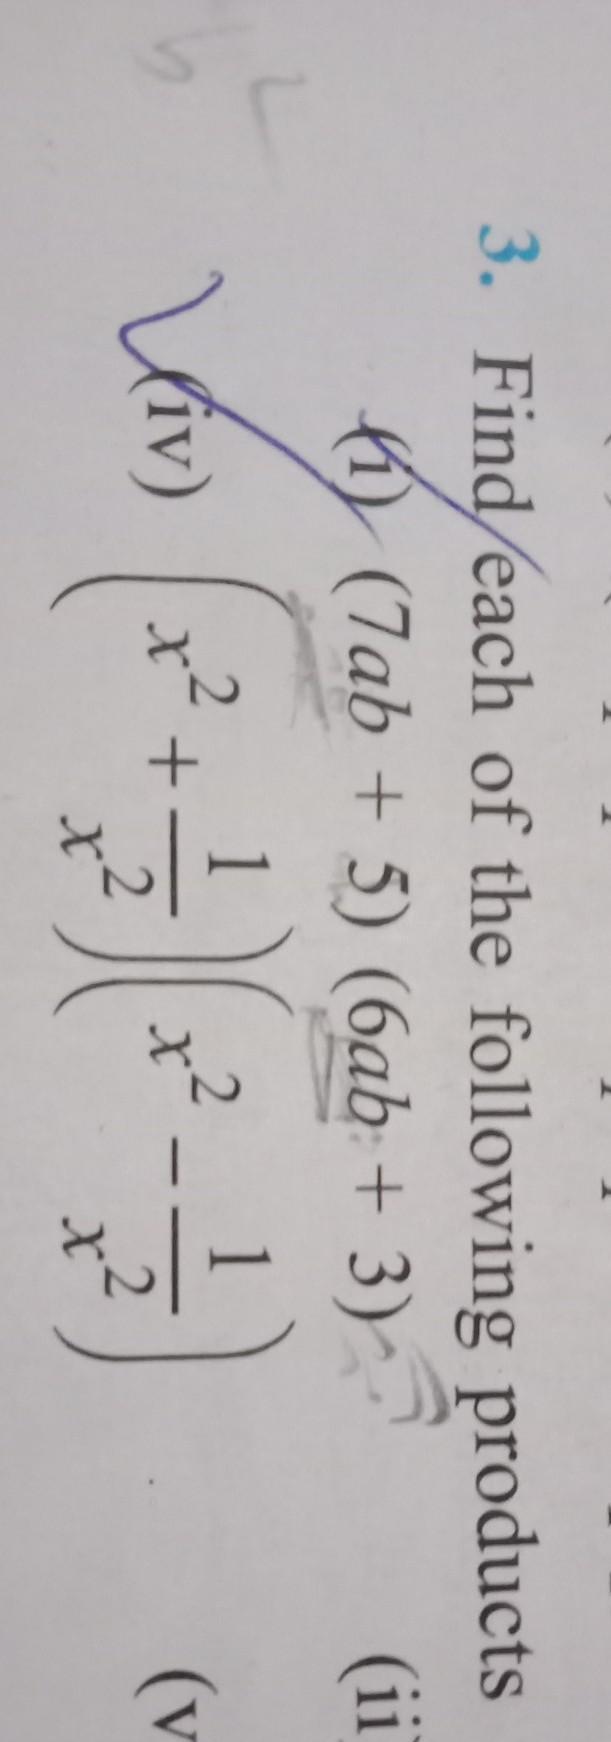 3. Find each of the following products
(i) (7ab + 5) (6ab + 3) (ii)
(iv) (x² + 1/x²)(x² - 1/x²) (v